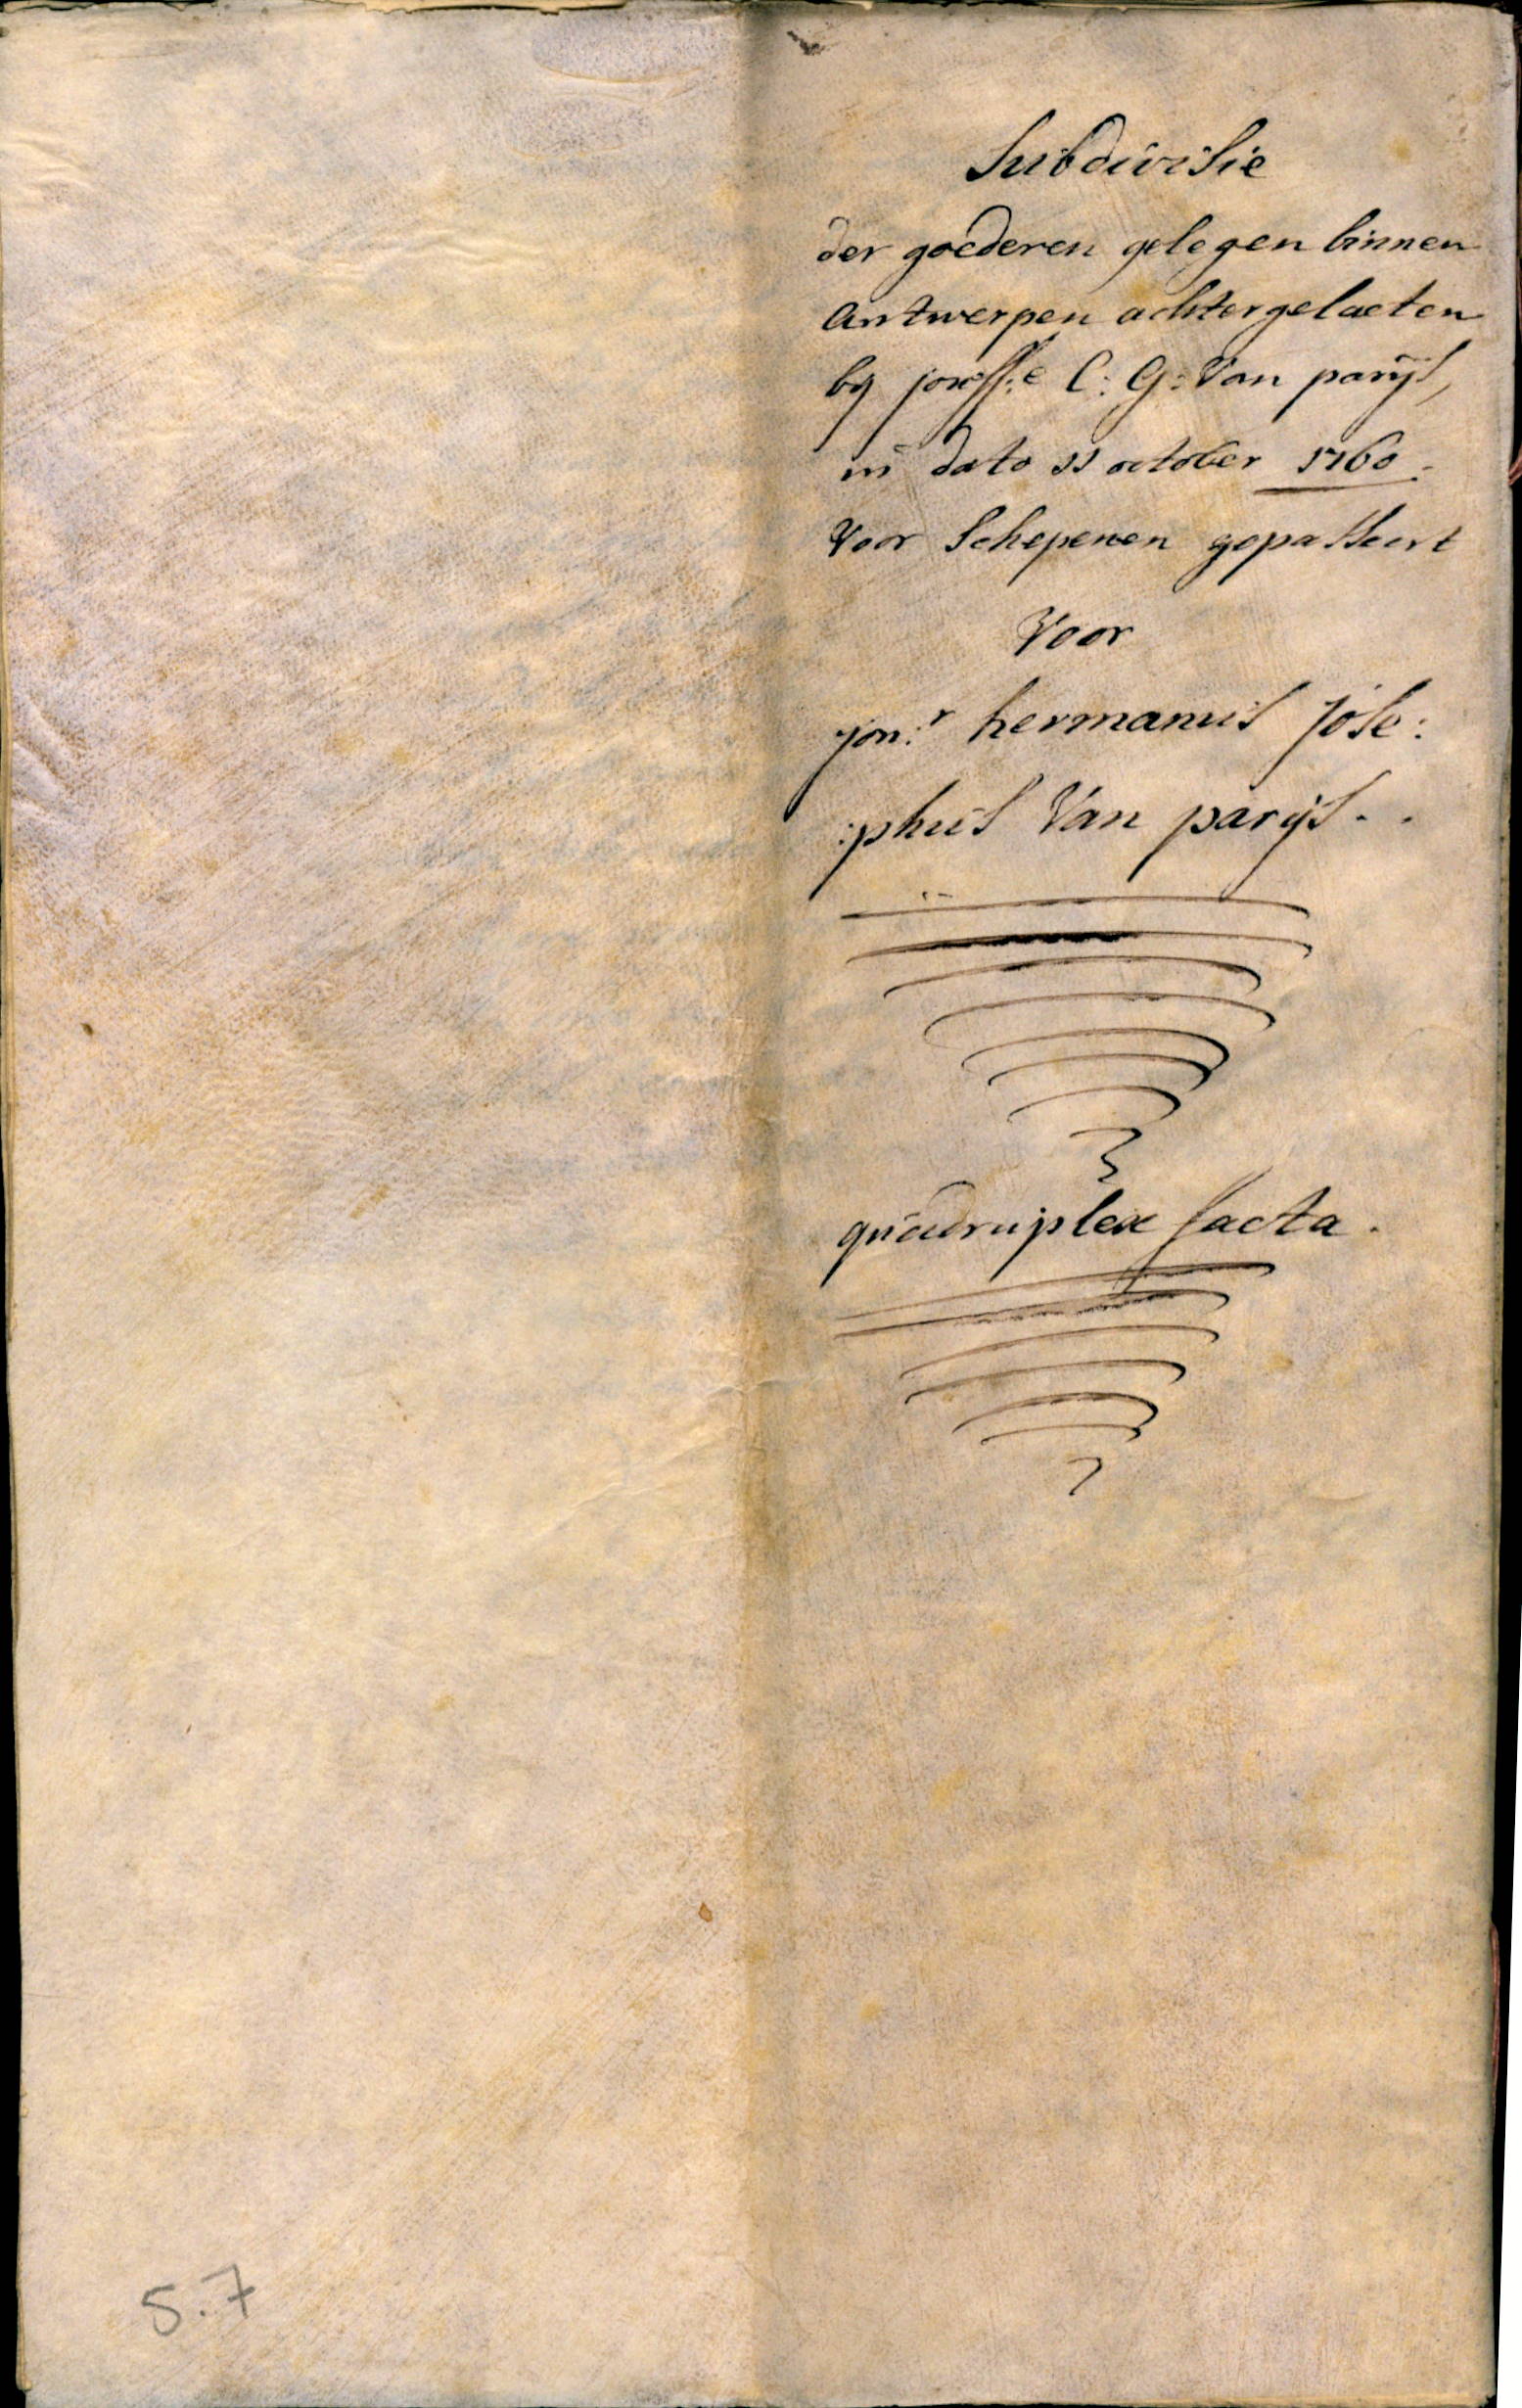 Subdivisie
der goederen gelegen binnen
Antwerpen achtergelaeten
by jouffe. C: G: Van parys,
in dato 11 october 1760.
Voor Schepenen gepasseert
Voor
jon:r hermanus jose:
:phus Van parys. .
quadruplex facta.
5.7